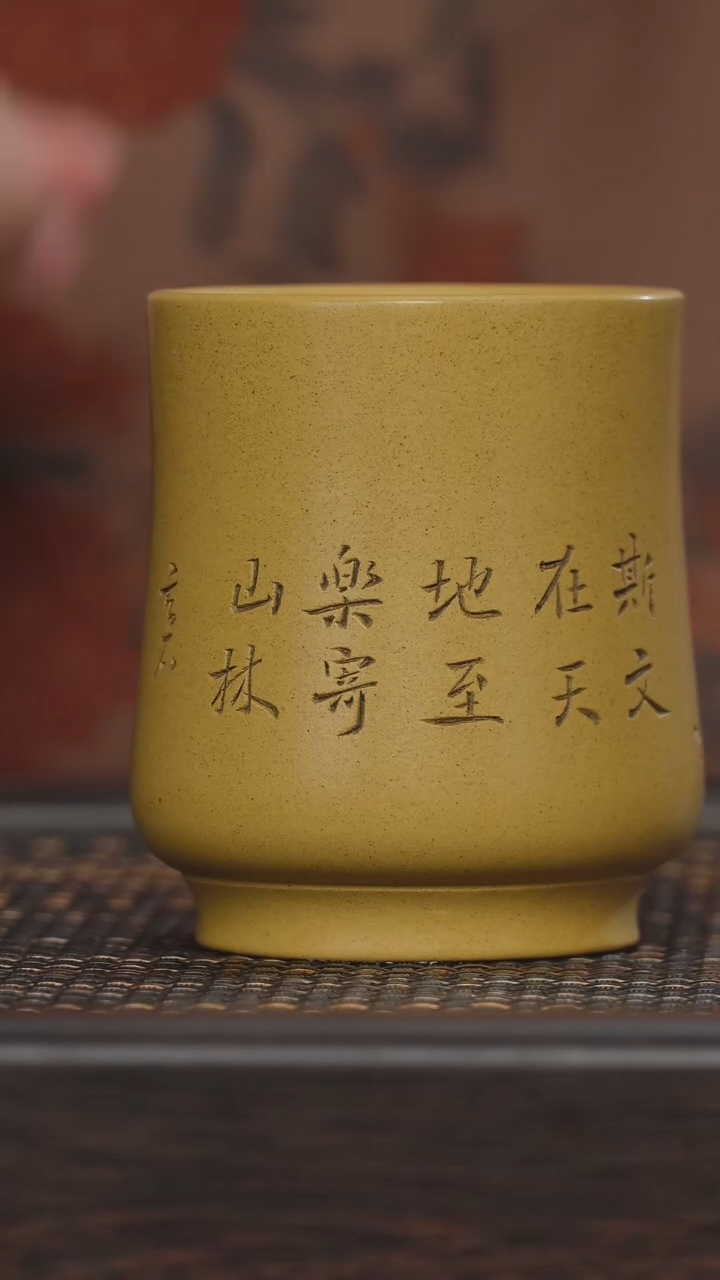 斯文
在天
地至
楽寄
山林